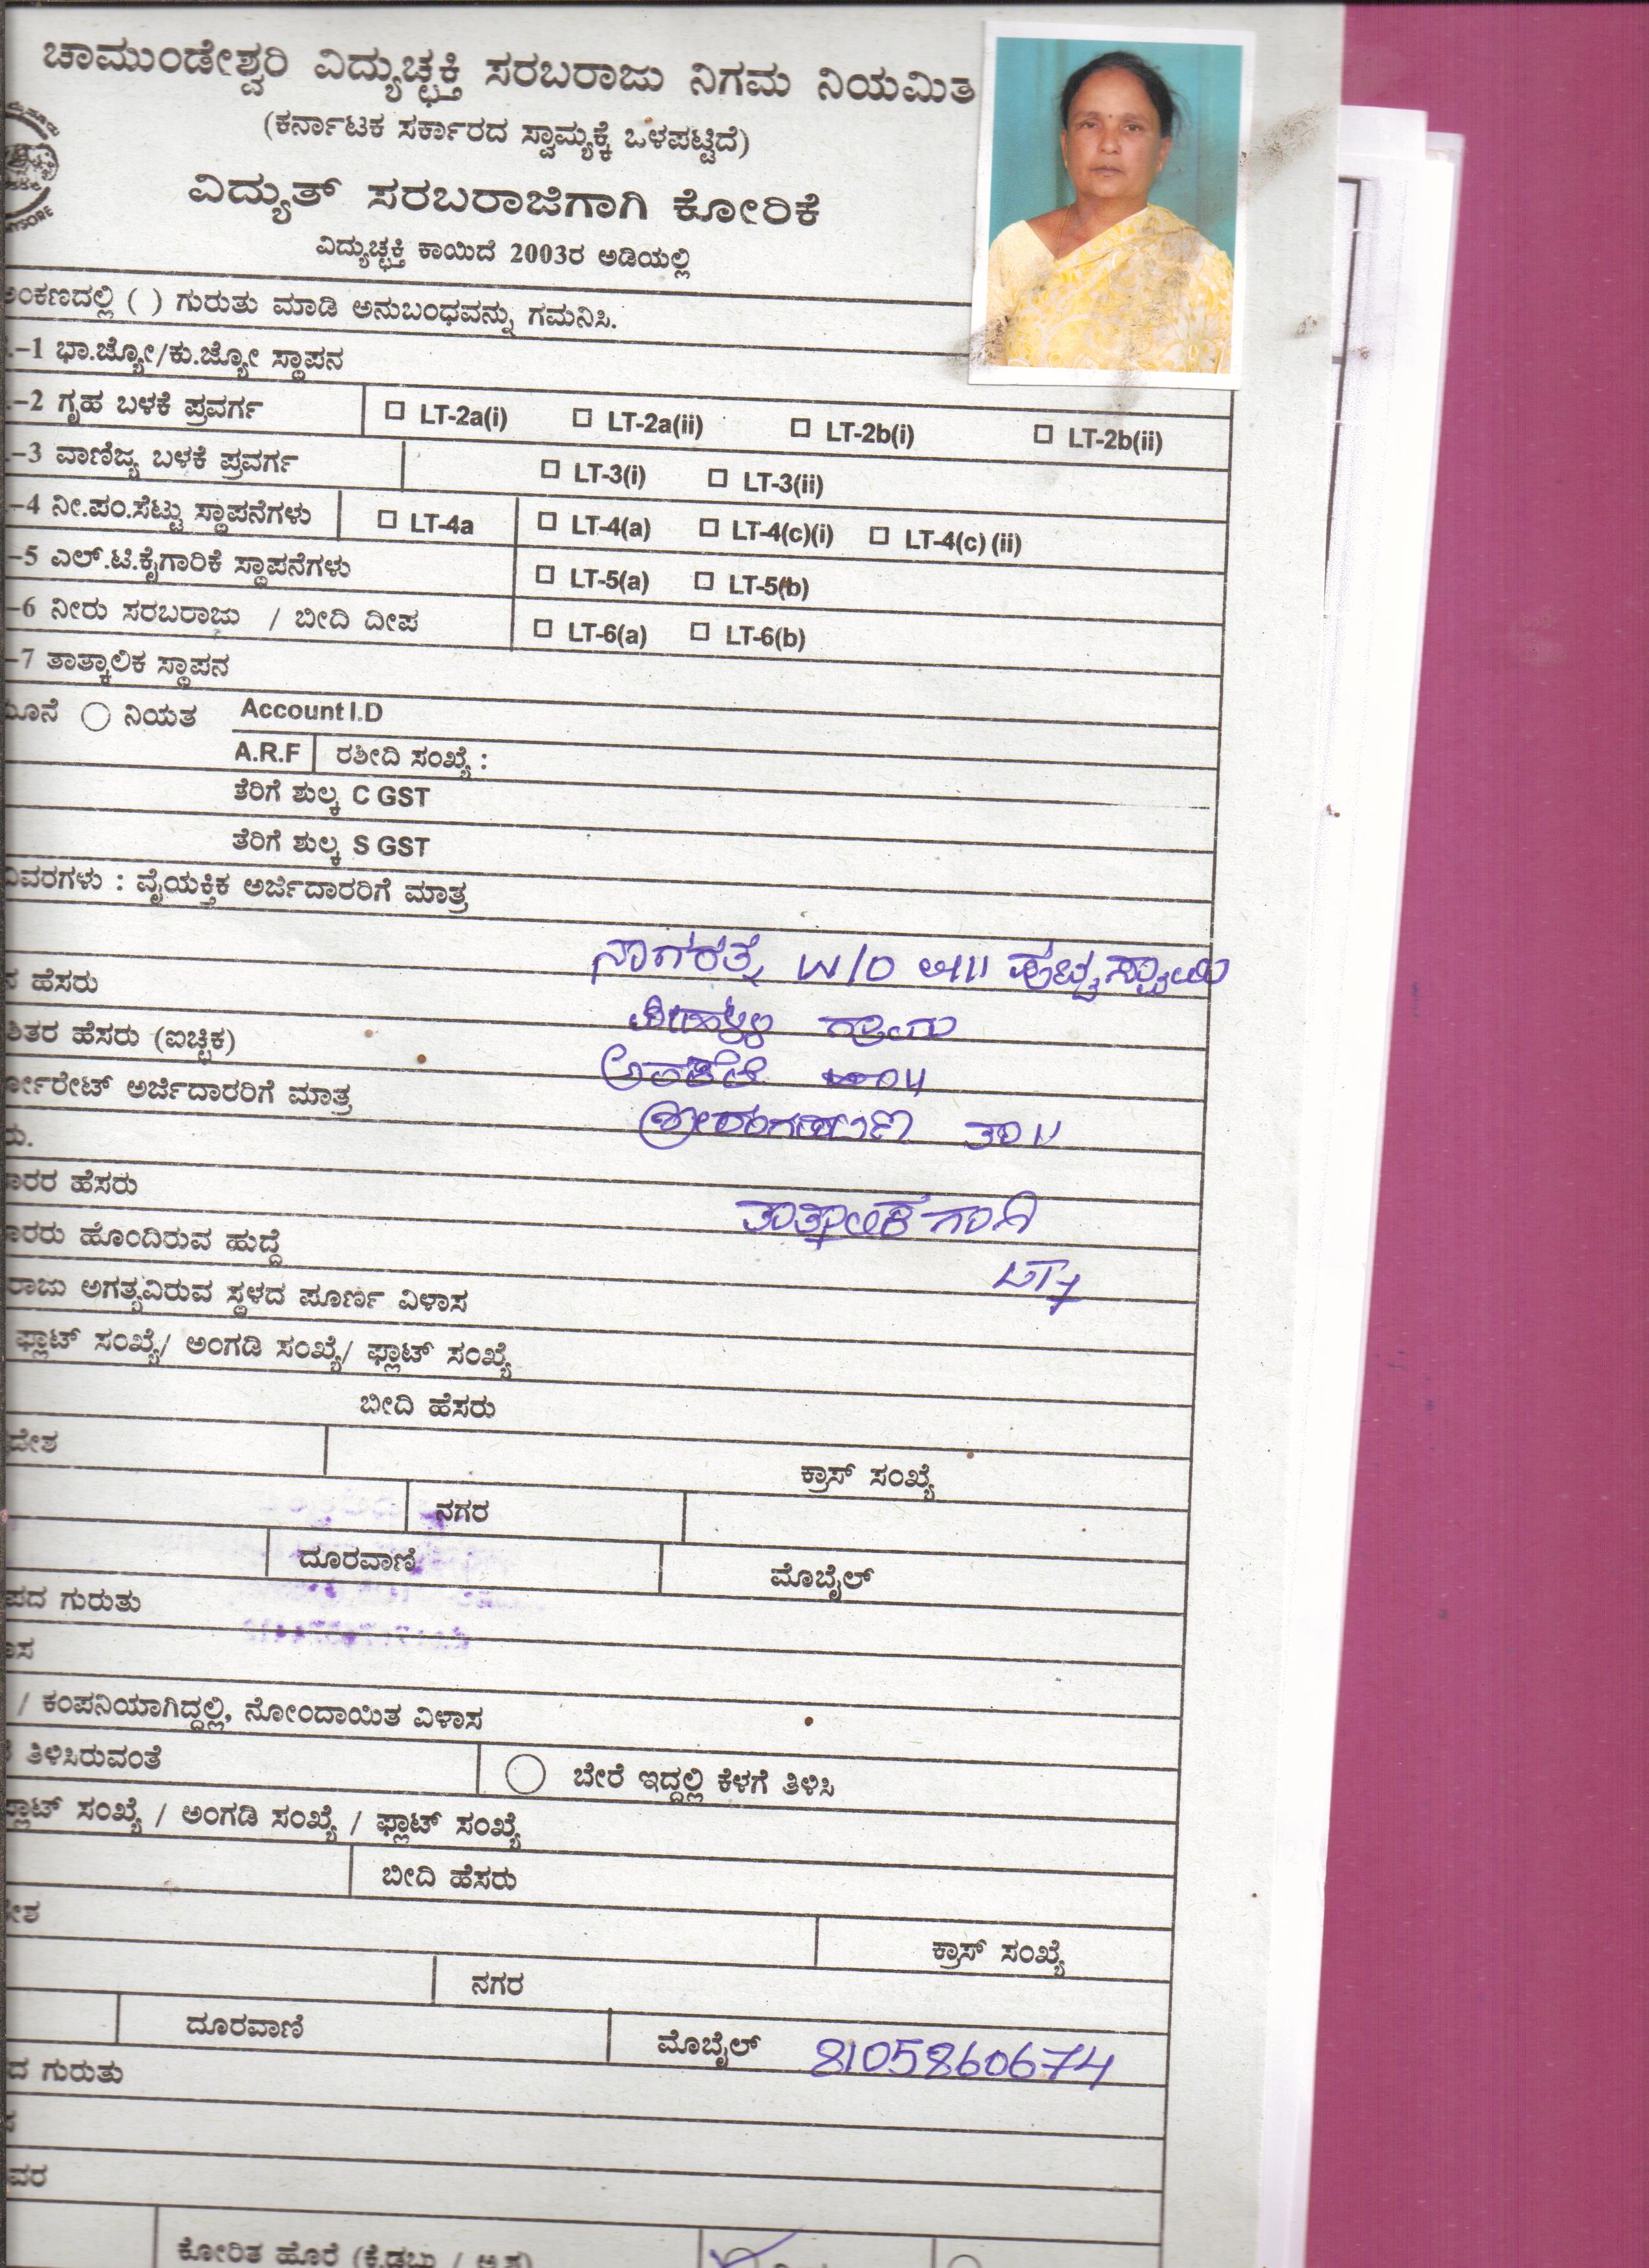 ಚಾಮುಂಡೇಶ್ವರಿ ವಿದ್ಯುಚ್ಛಕ್ತಿ ಸರಬರಾಜು ನಿಗಮ ನಿಯಮಿತ
(ಕರ್ನಾಟಕ ಸರ್ಕಾರದ ಸ್ವಾಮ್ಯಕ್ಕೆ ಒಳಪಟ್ಟಿದೆ)
ವಿದ್ಯುತ್ ಸರಬರಾಜಿಗಾಗಿ ಕೋರಿಕೆ
ವಿದ್ಯುಚ್ಛಕ್ತಿ ಕಾಯಿದೆ 2003ರ ಅಡಿಯಲ್ಲಿ
ಅಂಕಣದಲ್ಲಿ ( ) ಗುರುತು ಮಾಡಿ ಅನುಬಂಧವನ್ನು ಗಮನಿಸಿ.
.–1 ಭಾ.ಜ್ಯೋ/ಕು.ಜ್ಯೋ ಸ್ಥಾಪನ
.–2 ಗೃಹ ಬಳಕೆ ಪ್ರವರ್ಗ ☐ LT-2a(i) ☐ LT-2a(ii) ☐ LT-2b(i) ☐ LT-2b(ii)
.–3 ವಾಣಿಜ್ಯ ಬಳಕೆ ಪ್ರವರ್ಗ ☐ LT-3(i) ☐ LT-3(ii)
.–4 ನೀ.ಪಂ.ಸೆಟ್ಟು ಸ್ಥಾಪನೆಗಳು ☐ LT-4a ☐ LT-4(a) ☐ LT-4(c)(i) ☐ LT-4(c) (ii)
–5 ಎಲ್.ಟಿ.ಕೈಗಾರಿಕೆ ಸ್ಥಾಪನೆಗಳು ☐ LT-5(a) ☐ LT-5(b)
–6 ನೀರು ಸರಬರಾಜು / ಬೀದಿ ದೀಪ ☐ LT-6(a) ☐ LT-6(b)
–7 ತಾತ್ಕಾಲಿಕ ಸ್ಥಾಪನ
ನಿಯತ Account I.D
A.R.F ರಶೀದಿ ಸಂಖ್ಯೆ :
ತೆರಿಗೆ ಶುಲ್ಕ C GST
ತೆರಿಗೆ ಶುಲ್ಕ S GST
ವಿವರಗಳು : ವೈಯಕ್ತಿಕ ಅರ್ಜಿದಾರರಿಗೆ ಮಾತ್ರ
ನ ಹೆಸರು ನಾಗರತ್ನ W/O ಪುಟ್ಟಸ್ವಾಮಿ
ಶಿತರ ಹೆಸರು (ಐಚ್ಛಿಕ) ಗ್ರಾಮ
ರ್ಪೋರೇಟ್ ಅರ್ಜಿದಾರರಿಗೆ ಮಾತ್ರ
ರು. ಶ್ರೀರಂಗಪಟ್ಟಣ ತಾ॥
ಾರರ ಹೆಸರು
ಾರರು ಹೊಂದಿರುವ ಹುದ್ದೆ LT7
ರಾಜು ಅಗತ್ಯವಿರುವ ಸ್ಥಳದ ಪೂರ್ಣ ವಿಳಾಸ
ಫ್ಲಾಟ್ ಸಂಖ್ಯೆ/ ಅಂಗಡಿ ಸಂಖ್ಯೆ/ ಫ್ಲಾಟ್ ಸಂಖ್ಯೆ
ಬೀದಿ ಹೆಸರು
ದೇಶ ಕ್ರಾಸ್ ಸಂಖ್ಯೆ
ನಗರ
ದೂರವಾಣಿ ಮೊಬೈಲ್
ಪದ ಗುರುತು
ಾಸ
/ ಕಂಪನಿಯಾಗಿದ್ದಲ್ಲಿ, ನೋಂದಾಯಿತ ವಿಳಾಸ
ತಿಳಿಸಿರುವಂತೆ ಬೇರೆ ಇದ್ದಲ್ಲಿ ಕೆಳಗೆ ತಿಳಿಸಿ
ಫ್ಲಾಟ್ ಸಂಖ್ಯೆ / ಅಂಗಡಿ ಸಂಖ್ಯೆ / ಫ್ಲಾಟ್ ಸಂಖ್ಯೆ
ಬೀದಿ ಹೆಸರು
ೇಶ ಕ್ರಾಸ್ ಸಂಖ್ಯೆ
ನಗರ
ದೂರವಾಣಿ ಮೊಬೈಲ್ 8105860674
ದ ಗುರುತು
ವರ
ಕೋರಿತ ಹೊರೆ